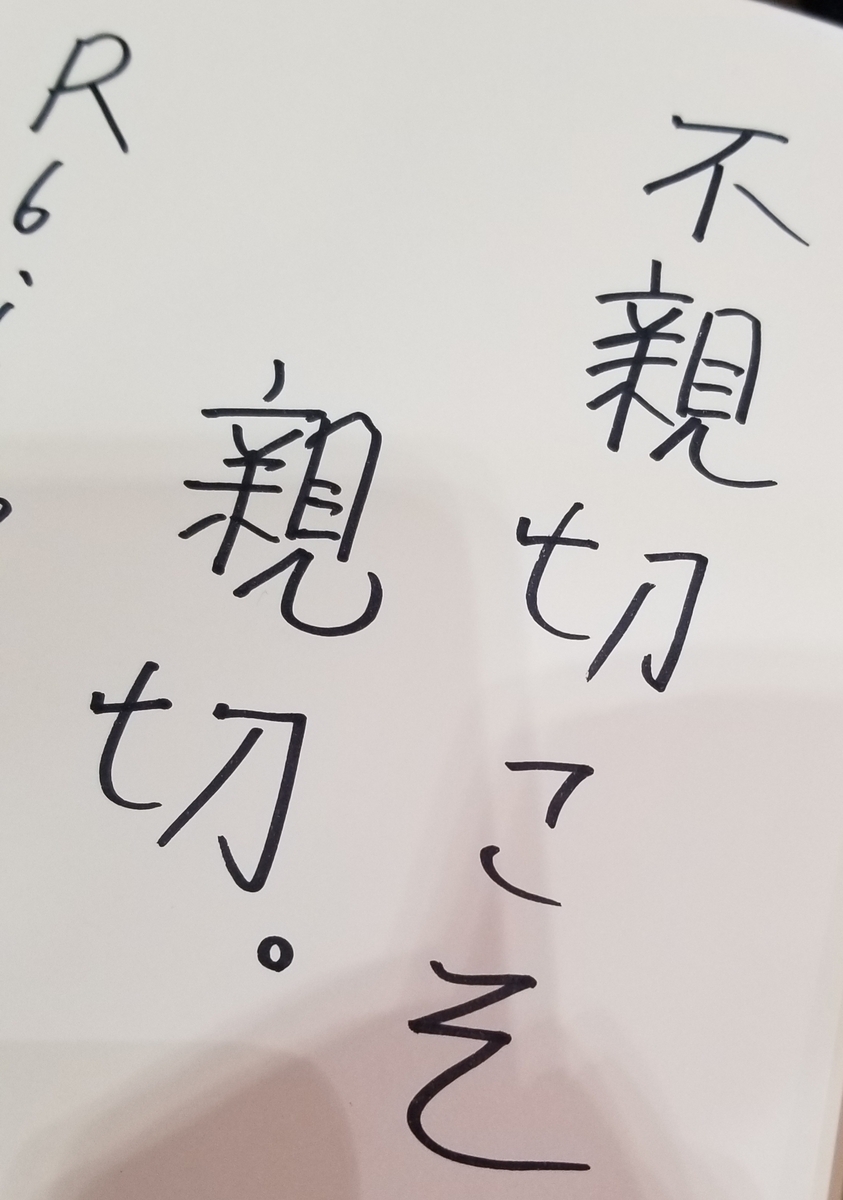 不親切こそ
親切。
R6